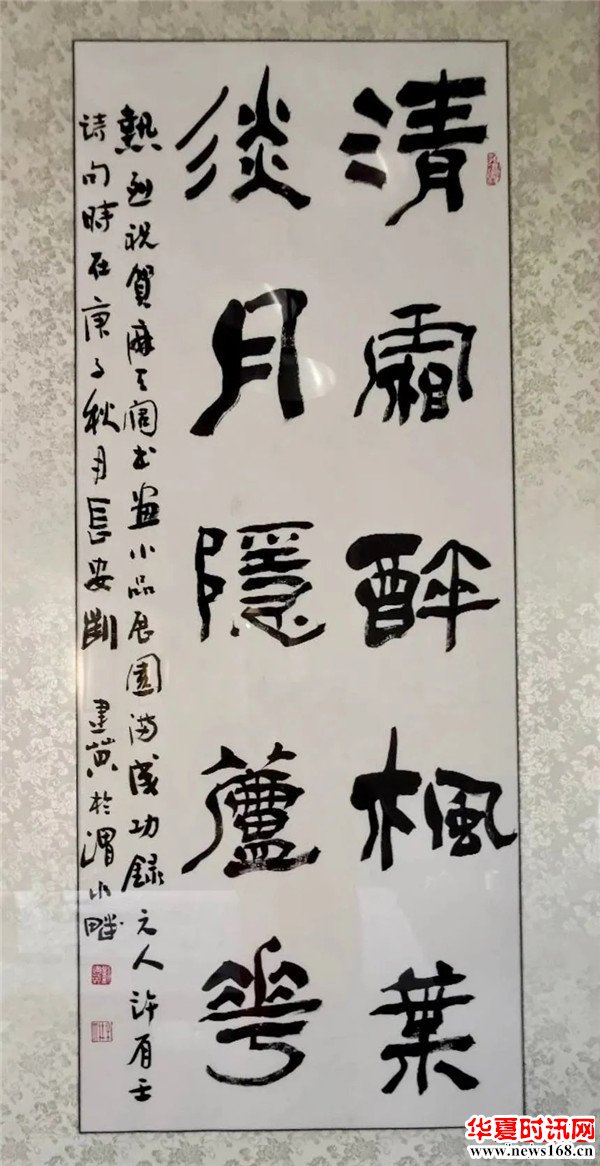 清霜醉楓葉
淡月隱蘆花
熱烈祝賀麻天阔书画小品展圆满成功錄元人许有壬
诗句時在庚子秋月長安劉建黄於渭水畔
华夏时讯网
www.news168.cn